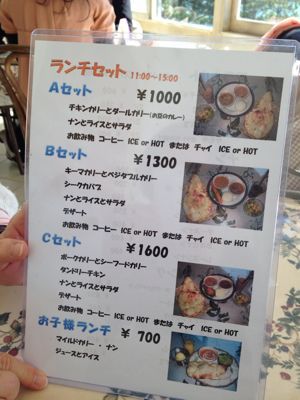 ランチセット 11:00〜15:00
Aセット ¥1000
チキンカリーとダールカリー(お豆のカレー)
ナンとライスとサラダ
お飲み物 コーヒー ICE or HOT または チャイ ICE or HOT
Bセット ¥1300
キーマカリーとベジタブルカリー
シークカバブ
ナンとライスとサラダ
デザート
お飲み物 コーヒー ICE or HOT または チャイ ICE or HOT
Cセット ¥1600
ポークカリーとシーフードカリー
タンドリーチキン
ナンとライスとサラダ
デザート
お飲み物 コーヒー ICE or HOT または チャイ ICE or HOT
お子様ランチ ¥ 700
マイルドカリー ・ ナン
ジュースとアイス